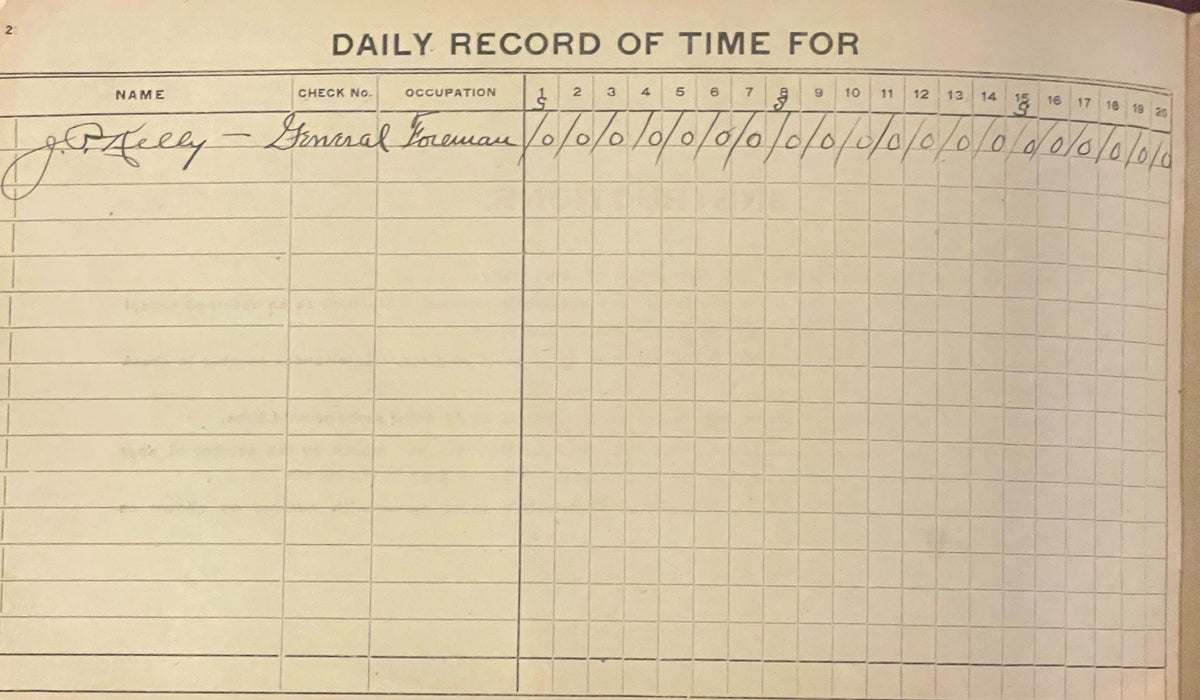 2
DAILY RECORD OF TIME FOR
NAME CHECK No. OCCUPATION 1 2 3 4 5 6 7 8 9 10 11 12 13 14 15 16 17 18 19 20
S S S
J.P. Kelly — General Foreman /0/0/0/0/0/0/0/0/0/0/0/0/0/0/0/0/0/0/0/0